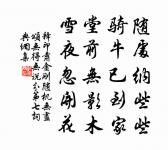 随處納些些
騎牛已到家
堂前無影木
雪夜忽開花
釋印肅金剛随机無盡
頌無得無説分第七詞
典網集